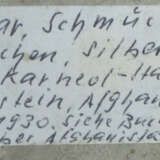 ar, Schmuc
chen, silber
Karneol-
stein, Afghan
1930, Siehe Buc
ber Afghanista